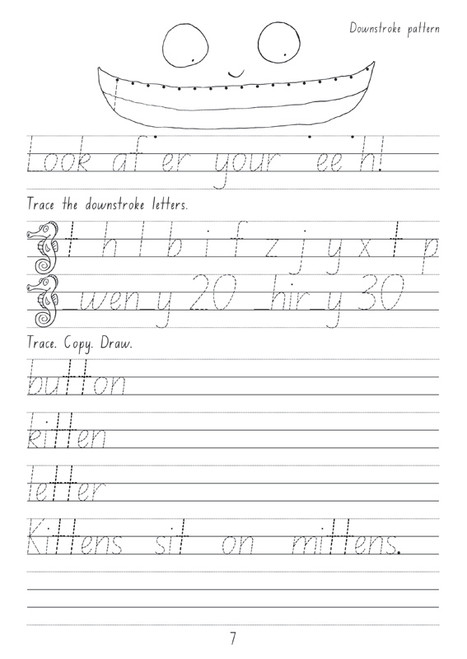 Downstroke pattern
Look af er your  ee h!
Trace the downstroke letters.
t h l b i f z j y x t p
_wen_y 20 _hir_y 30
Trace. Copy. Draw.
button
kitten
letter
Kittens sit on mittens.
7